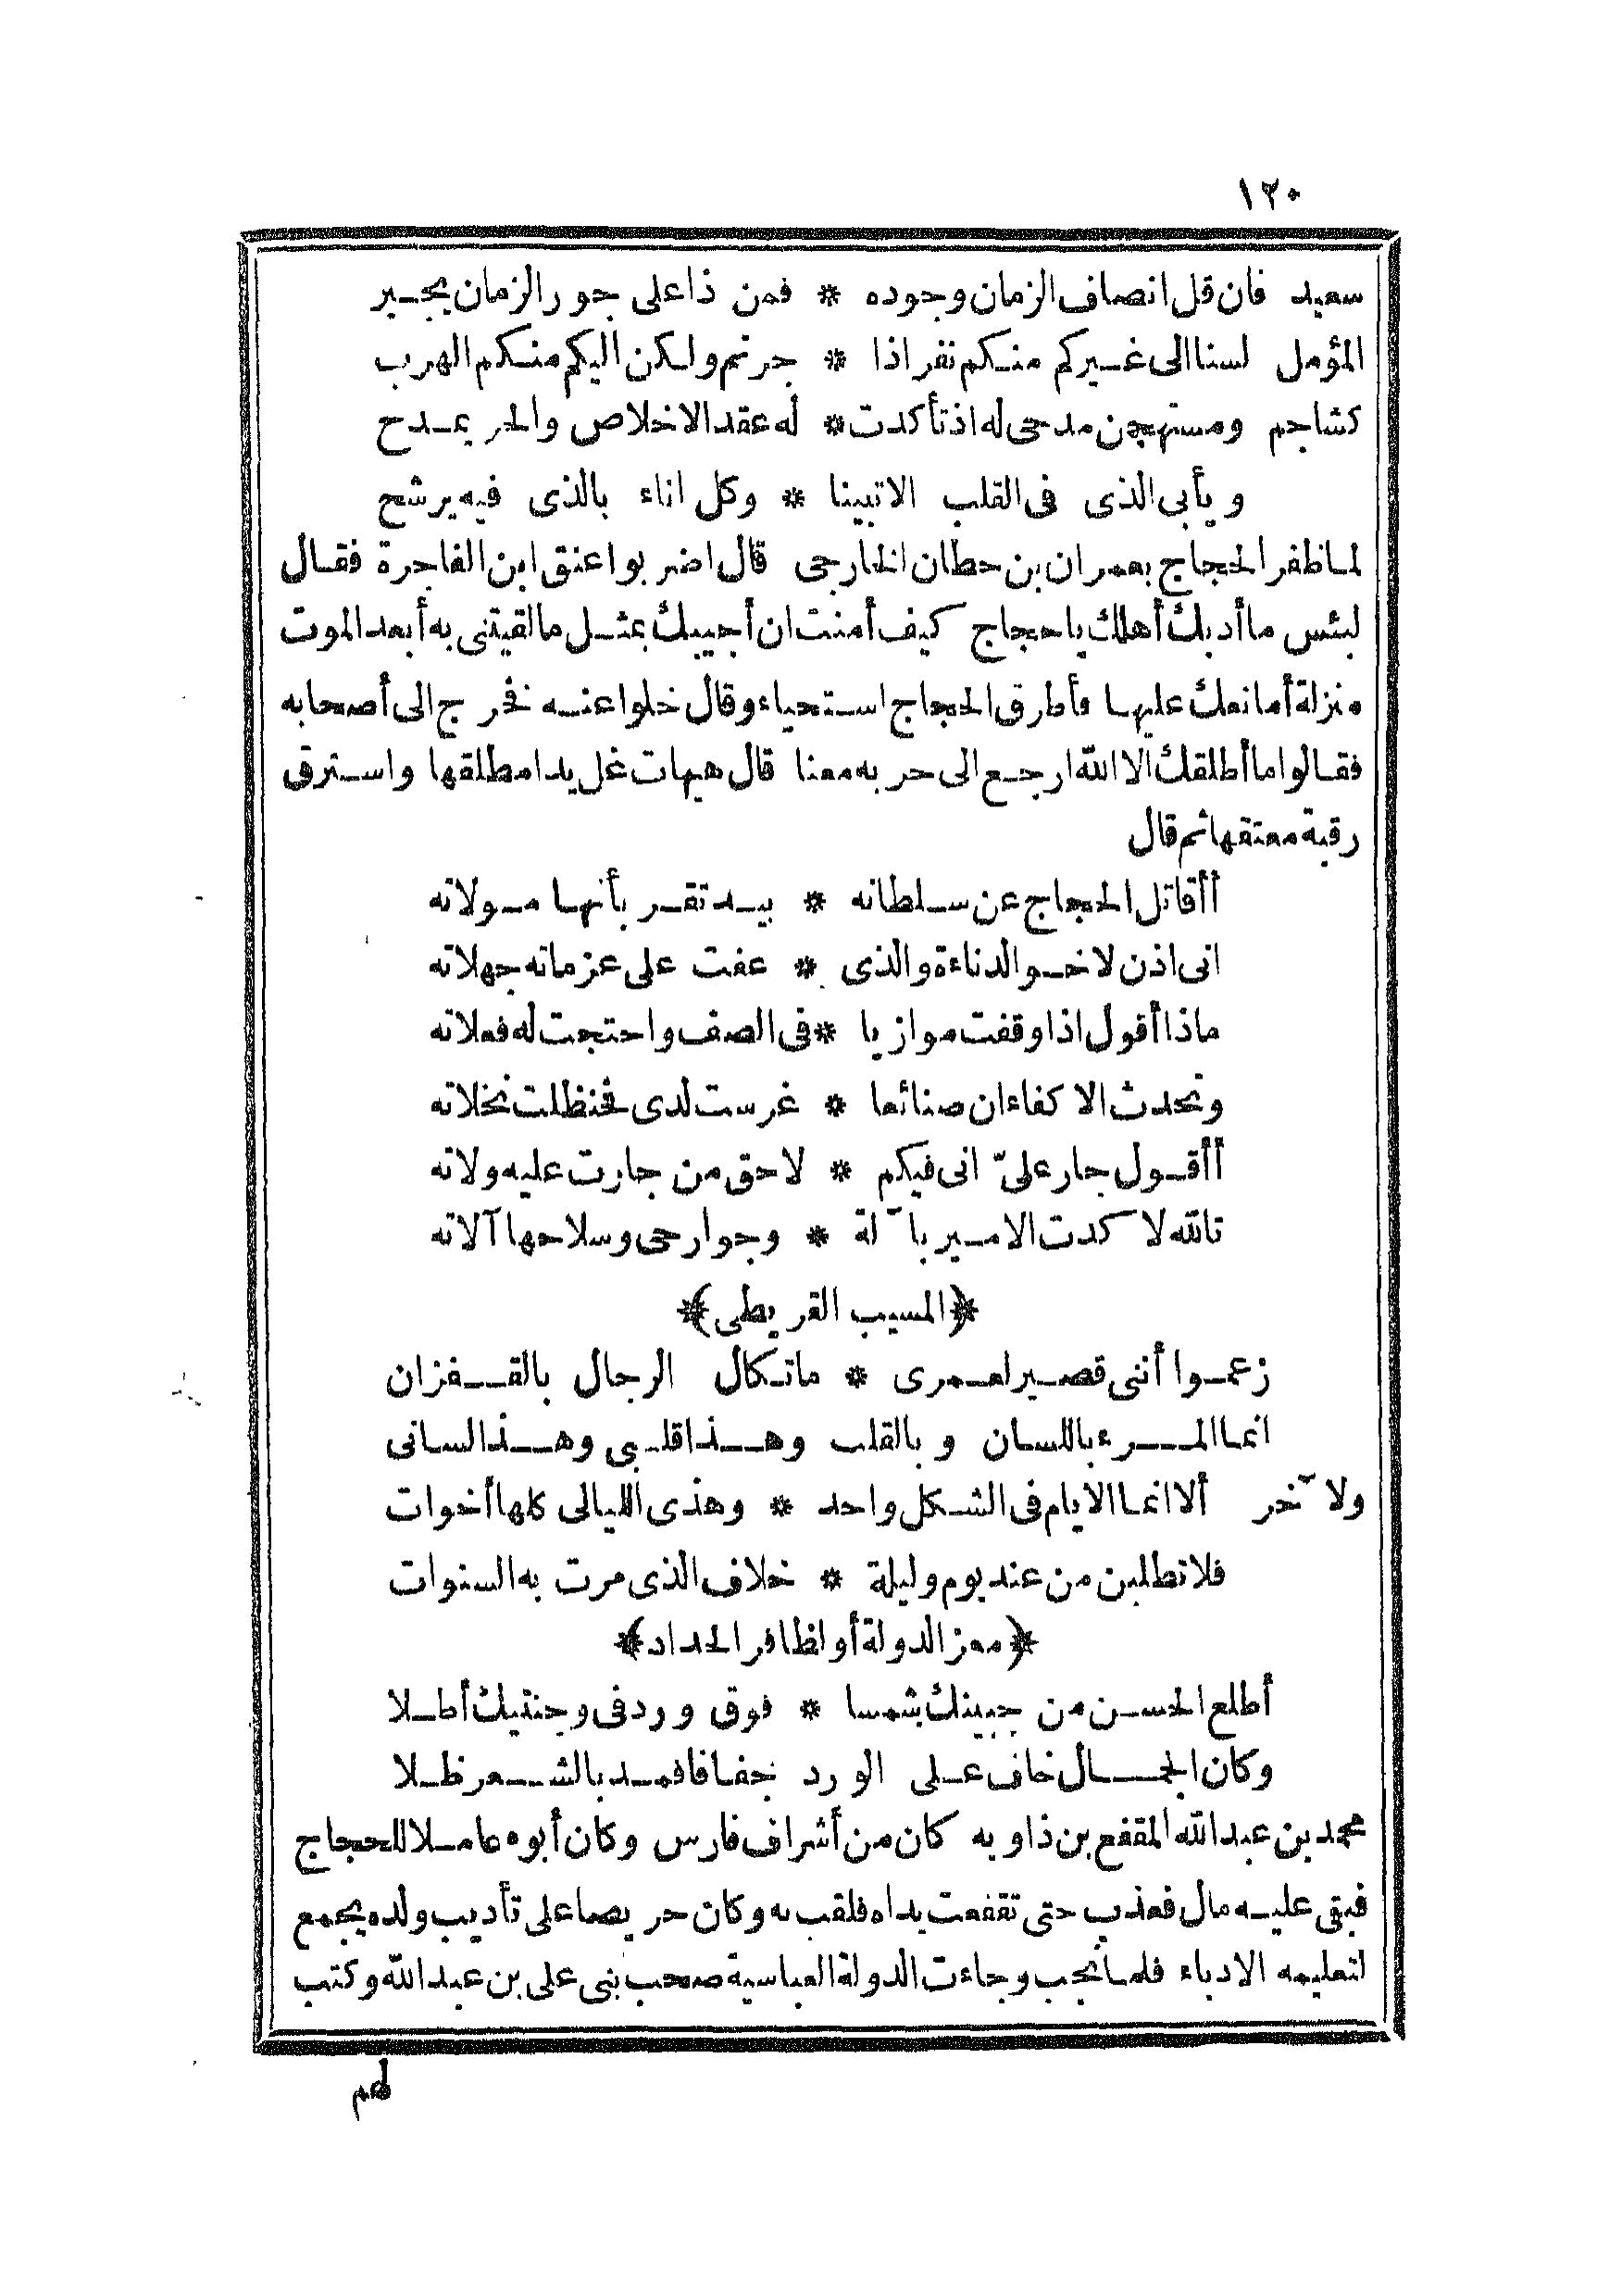 ١٢٠
سعيد فان قل انصاف الزمان وجوده * فمن ذا على جور الزمان يجير
المؤمل لسنا الى غيركم منكم نفر اذا * جرتم ولكن اليكم منكم الهرب
كشاجم ومستهجن مدحى له اذ تأكدت * له عقد الاخلاص والحر يمدح
ويأبى الذى فى القلب الا تبينا * وكل اناء بالذى فيه يرشح
لما ظفر الحجاج بعمران بن حطان الخارجى قال اضربوا عنق ابن الفاجرة فقال
لبئس ما أدبك أهلك يا حجاج كيف أمنت ان أجيبك بمثل ما لقيتنى به أبعد الموت
منزلة أمانعك عليها فأطرق الحجاج استحياء وقال خلوا عنه فخرج الى أصحابه
فقالوا ما أطلقك الا الله ارجع الى حربه معنا قال هيهات غل يدا مطلقها واسترق
رقبة معتقها ثم قال
أأقاتل الحجاج عن سلطانه * بيد تقر بأنها مولاته
انى اذن لاخو الدناءة والذى * عفت على عزماته جهلاته
ماذا أقول اذا وقفت موازيا * فى الصف واحتجت له فعلاته
وتحدث الاكفاء ان صنائعا * غرست لدى فحنظلت نخلاته
أأقول جار علىّ انى فيكم * لاحق من جارت عليه ولاته
تالله لا كدت الامير بآلة * وجوارحى وسلاحها آلاته
﴿المسيب القريطى﴾
زعموا أننى قصير لعمرى * ما تكال الرجال بالقفزان
انما المرء باللسان وبالقلب وهذا قلبى وهذا لسانى
ولآخر ألا انما الايام فى الشكل واحد * وهذى الليالى كلها أخوات
فلا تطلبن من عند يوم وليلة * خلاف الذى مرت به السنوات
﴿معز الدولة أو لظافر الحداد﴾
أطلع الحسن من جبينك شمسا * فوق ورد فى وجنتيك أطلا
وكان الجمال خاف على الورد جفافا فمد بالشعر ظلا
محمد بن عبد الله المقفع بن ذاويه كان من أشراف فارس وكان أبوه عاملا للحجاج
فبقى عليه مال فعذب حتى تقفعت يداه فلقب به وكان حريصا على تأديب ولده يجمع
لتعليمه الادباء فلما نجب وجاءت الدولة العباسية صحب بنى على بن عبد الله وكتب
لهم